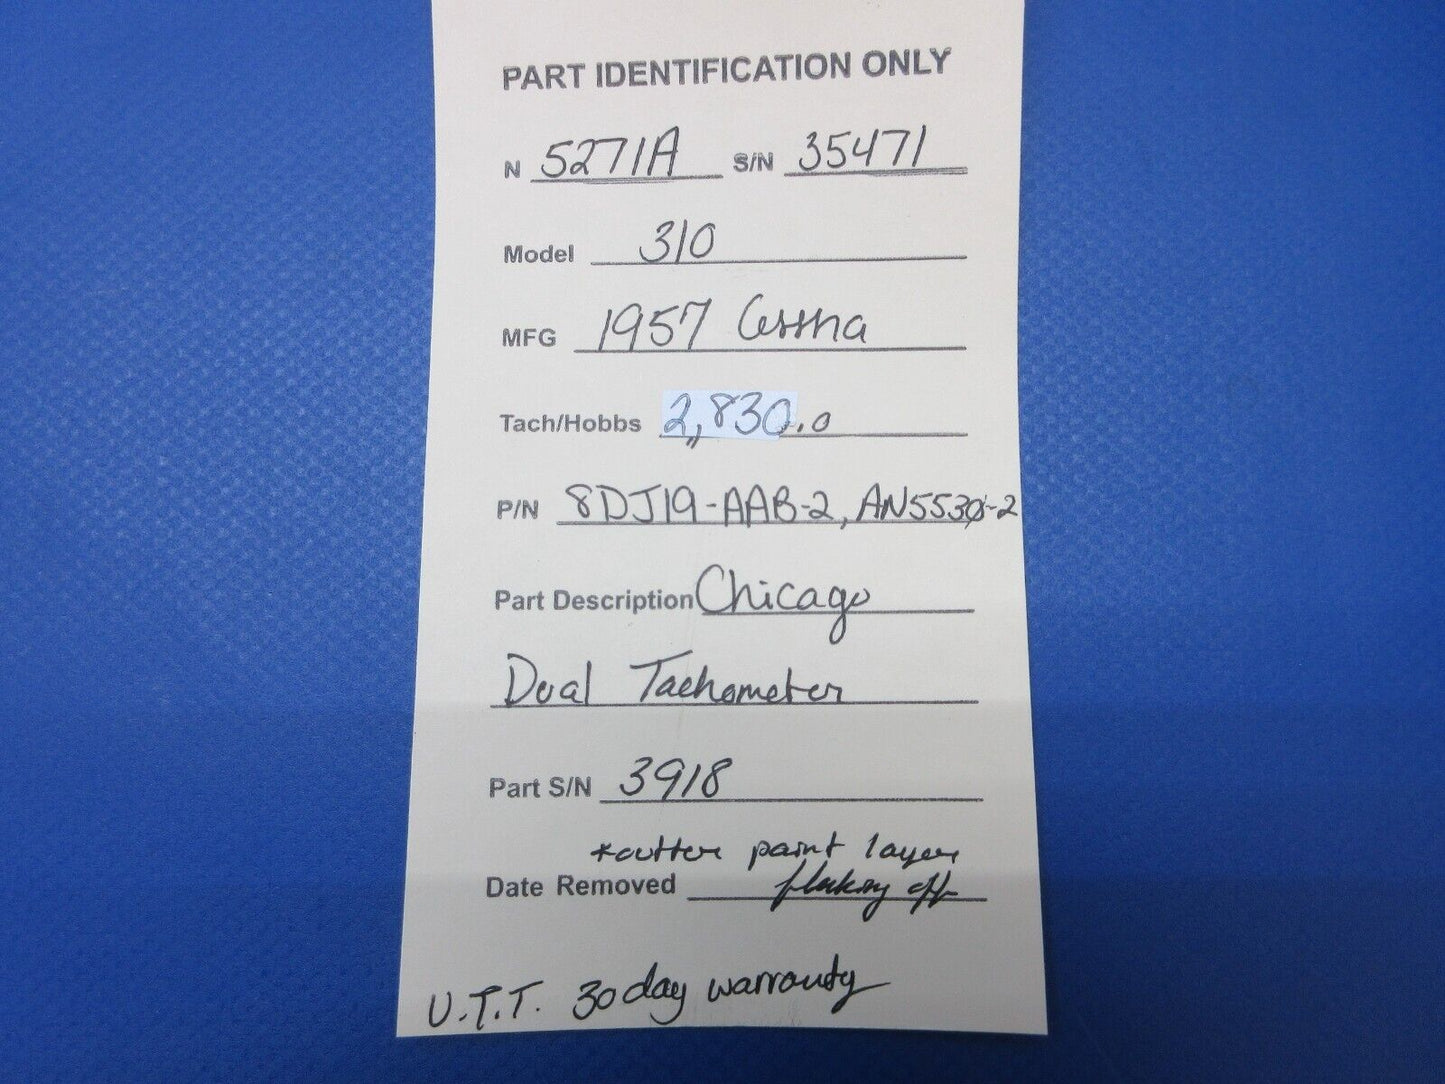 PART IDENTIFICATION ONLY
N 5271A S/N 35471
Model 310
MFG 1957 Cessna
Tach/Hobbs 2,830.0
P/N 8DJ19-AAB-2, AN5530-2
Part Description Chicago
Dual Tachometer
Part S/N 3918
*outter paint layer
Date Removed flaking off
U.T.T. 30 day warranty